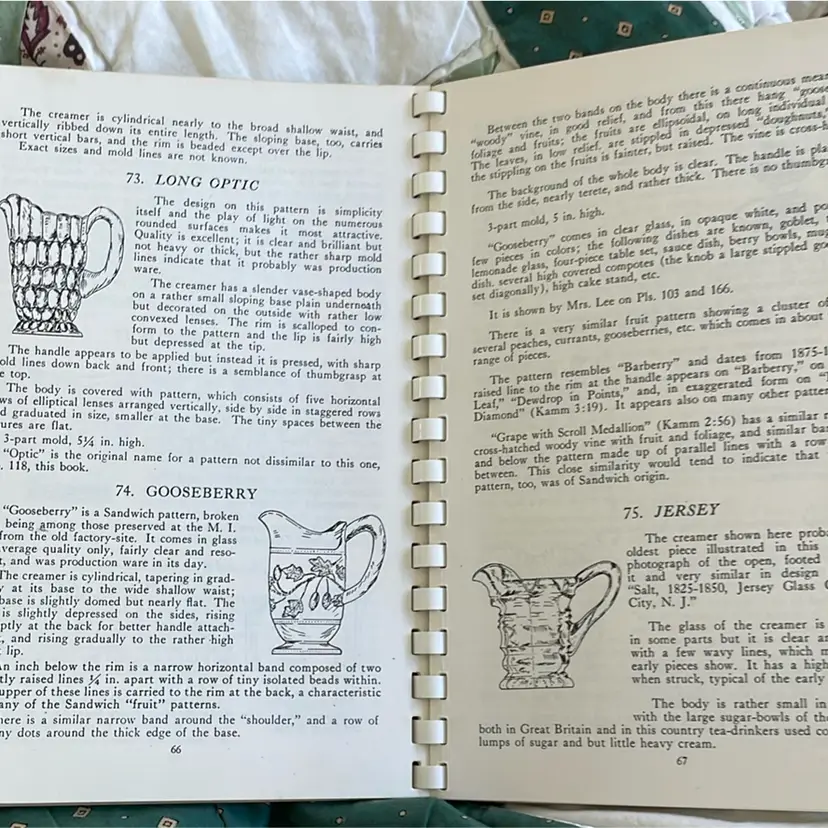 The creamer is cylindrical nearly to the broad shallow waist, and
vertically ribbed down its entire length. The sloping base, too, carries
short vertical bars, and the rim is beaded except over the lip.
Exact sizes and mold lines are not known.
73. LONG OPTIC
The design on this pattern is simplicity
itself and the play of light on the numerous
rounded surfaces makes it most attractive.
Quality is excellent; it is clear and brilliant but
not heavy or thick, but the rather sharp mold
lines indicate that it probably was production
ware.
The creamer has a slender vase-shaped body
on a rather small sloping base plain underneath
but decorated on the outside with rather low
convexed lenses. The rim is scalloped to con-
form to the pattern and the lip is fairly high
but depressed at the tip.
The handle appears to be applied but instead it is pressed, with sharp
old lines down back and front; there is a semblance of thumbgrasp at
e top.
The body is covered with pattern, which consists of five horizontal
ws of elliptical lenses arranged vertically, side by side in staggered rows
d graduated in size, smaller at the base. The tiny spaces between the
ures are flat.
3-part mold, 5¼ in. high.
"Optic" is the original name for a pattern not dissimilar to this one,
. 118, this book.
74. GOOSEBERRY
"Gooseberry" is a Sandwich pattern, broken
being among those preserved at the M. I.
from the old factory-site. It comes in glass
verage quality only, fairly clear and reso-
t, and was production ware in its day.
The creamer is cylindrical, tapering in grad-
y at its base to the wide shallow waist;
base is slightly domed but nearly flat. The
is slightly depressed on the sides, rising
ptly at the back for better handle attach-
t, and rising gradually to the rather high
lip.
An inch below the rim is a narrow horizontal band composed of two
tly raised lines ¼ in. apart with a row of tiny isolated beads within.
upper of these lines is carried to the rim at the back, a characteristic
any of the Sandwich "fruit" patterns.
here is a similar narrow band around the "shoulder," and a row of
ny dots around the thick edge of the base.
66
Between the two bands on the body there is a continuous mean
"woody" vine, in good relief, and from this there hang "goose
foliage and fruits; the fruits are ellipsoidal, on long individual
The leaves, in low relief, are stippled in depressed "doughnuts,"
the stippling on the fruits is fainter, but raised. The vine is cross-h
The background of the whole body is clear. The handle is pla
from the side, nearly terete, and rather thick. There is no thumbgr
3-part mold, 5 in. high.
"Gooseberry" comes in clear glass, in opaque white, and po
few pieces in colors; the following dishes are known, goblet,
lemonade glass, four-piece table set, sauce dish, berry bowls, mug
dish, several high covered compotes (the knob a large stippled go
set diagonally), high cake stand, etc.
It is shown by Mrs. Lee on Pls. 103 and 166.
There is a very similar fruit pattern showing a cluster of
several peaches, currants, gooseberries, etc. which comes in about
range of pieces.
The pattern resembles "Barberry" and dates from 1875-1
raised line to the rim at the handle appears on "Barberry," on
Leaf," "Dewdrop in Points," and, in exaggerated form on
Diamond" (Kamm 3:19). It appears also on many other patter
"Grape with Scroll Medallion" (Kamm 2:56) has a similar r
cross-hatched woody vine with fruit and foliage, and similar ban
and below the pattern made up of parallel lines with a row
between. This close similarity would tend to indicate that
pattern, too, was of Sandwich origin.
75. JERSEY
The creamer shown here proba
oldest piece illustrated in this
photograph of the open, footed
it and very similar in design
"Salt, 1825-1850, Jersey Glass C
City, N. J."
The glass of the creamer is
in some parts but it is clear an
with a few wavy lines, which m
early pieces show. It has a high
when struck, typical of the early
The body is rather small in
with the large sugar-bowls of the
both in Great Britain and in this country tea-drinkers used co
lumps of sugar and but little heavy cream.
67